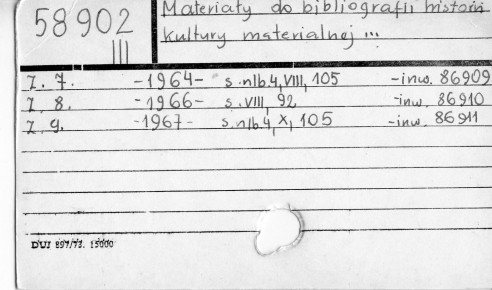 58902
III
Materiały do bibliografii historii
kultury materialnej ...
Z. 7. -1964- s. nlb. 4, VIII, 105 -inw. 86909
Z. 8. -1966- s. VIII, 92 -inw. 86910
Z. 9. -1967- s. nlb. 4, X, 105 -inw. 86911
DUI 897/73. 15000